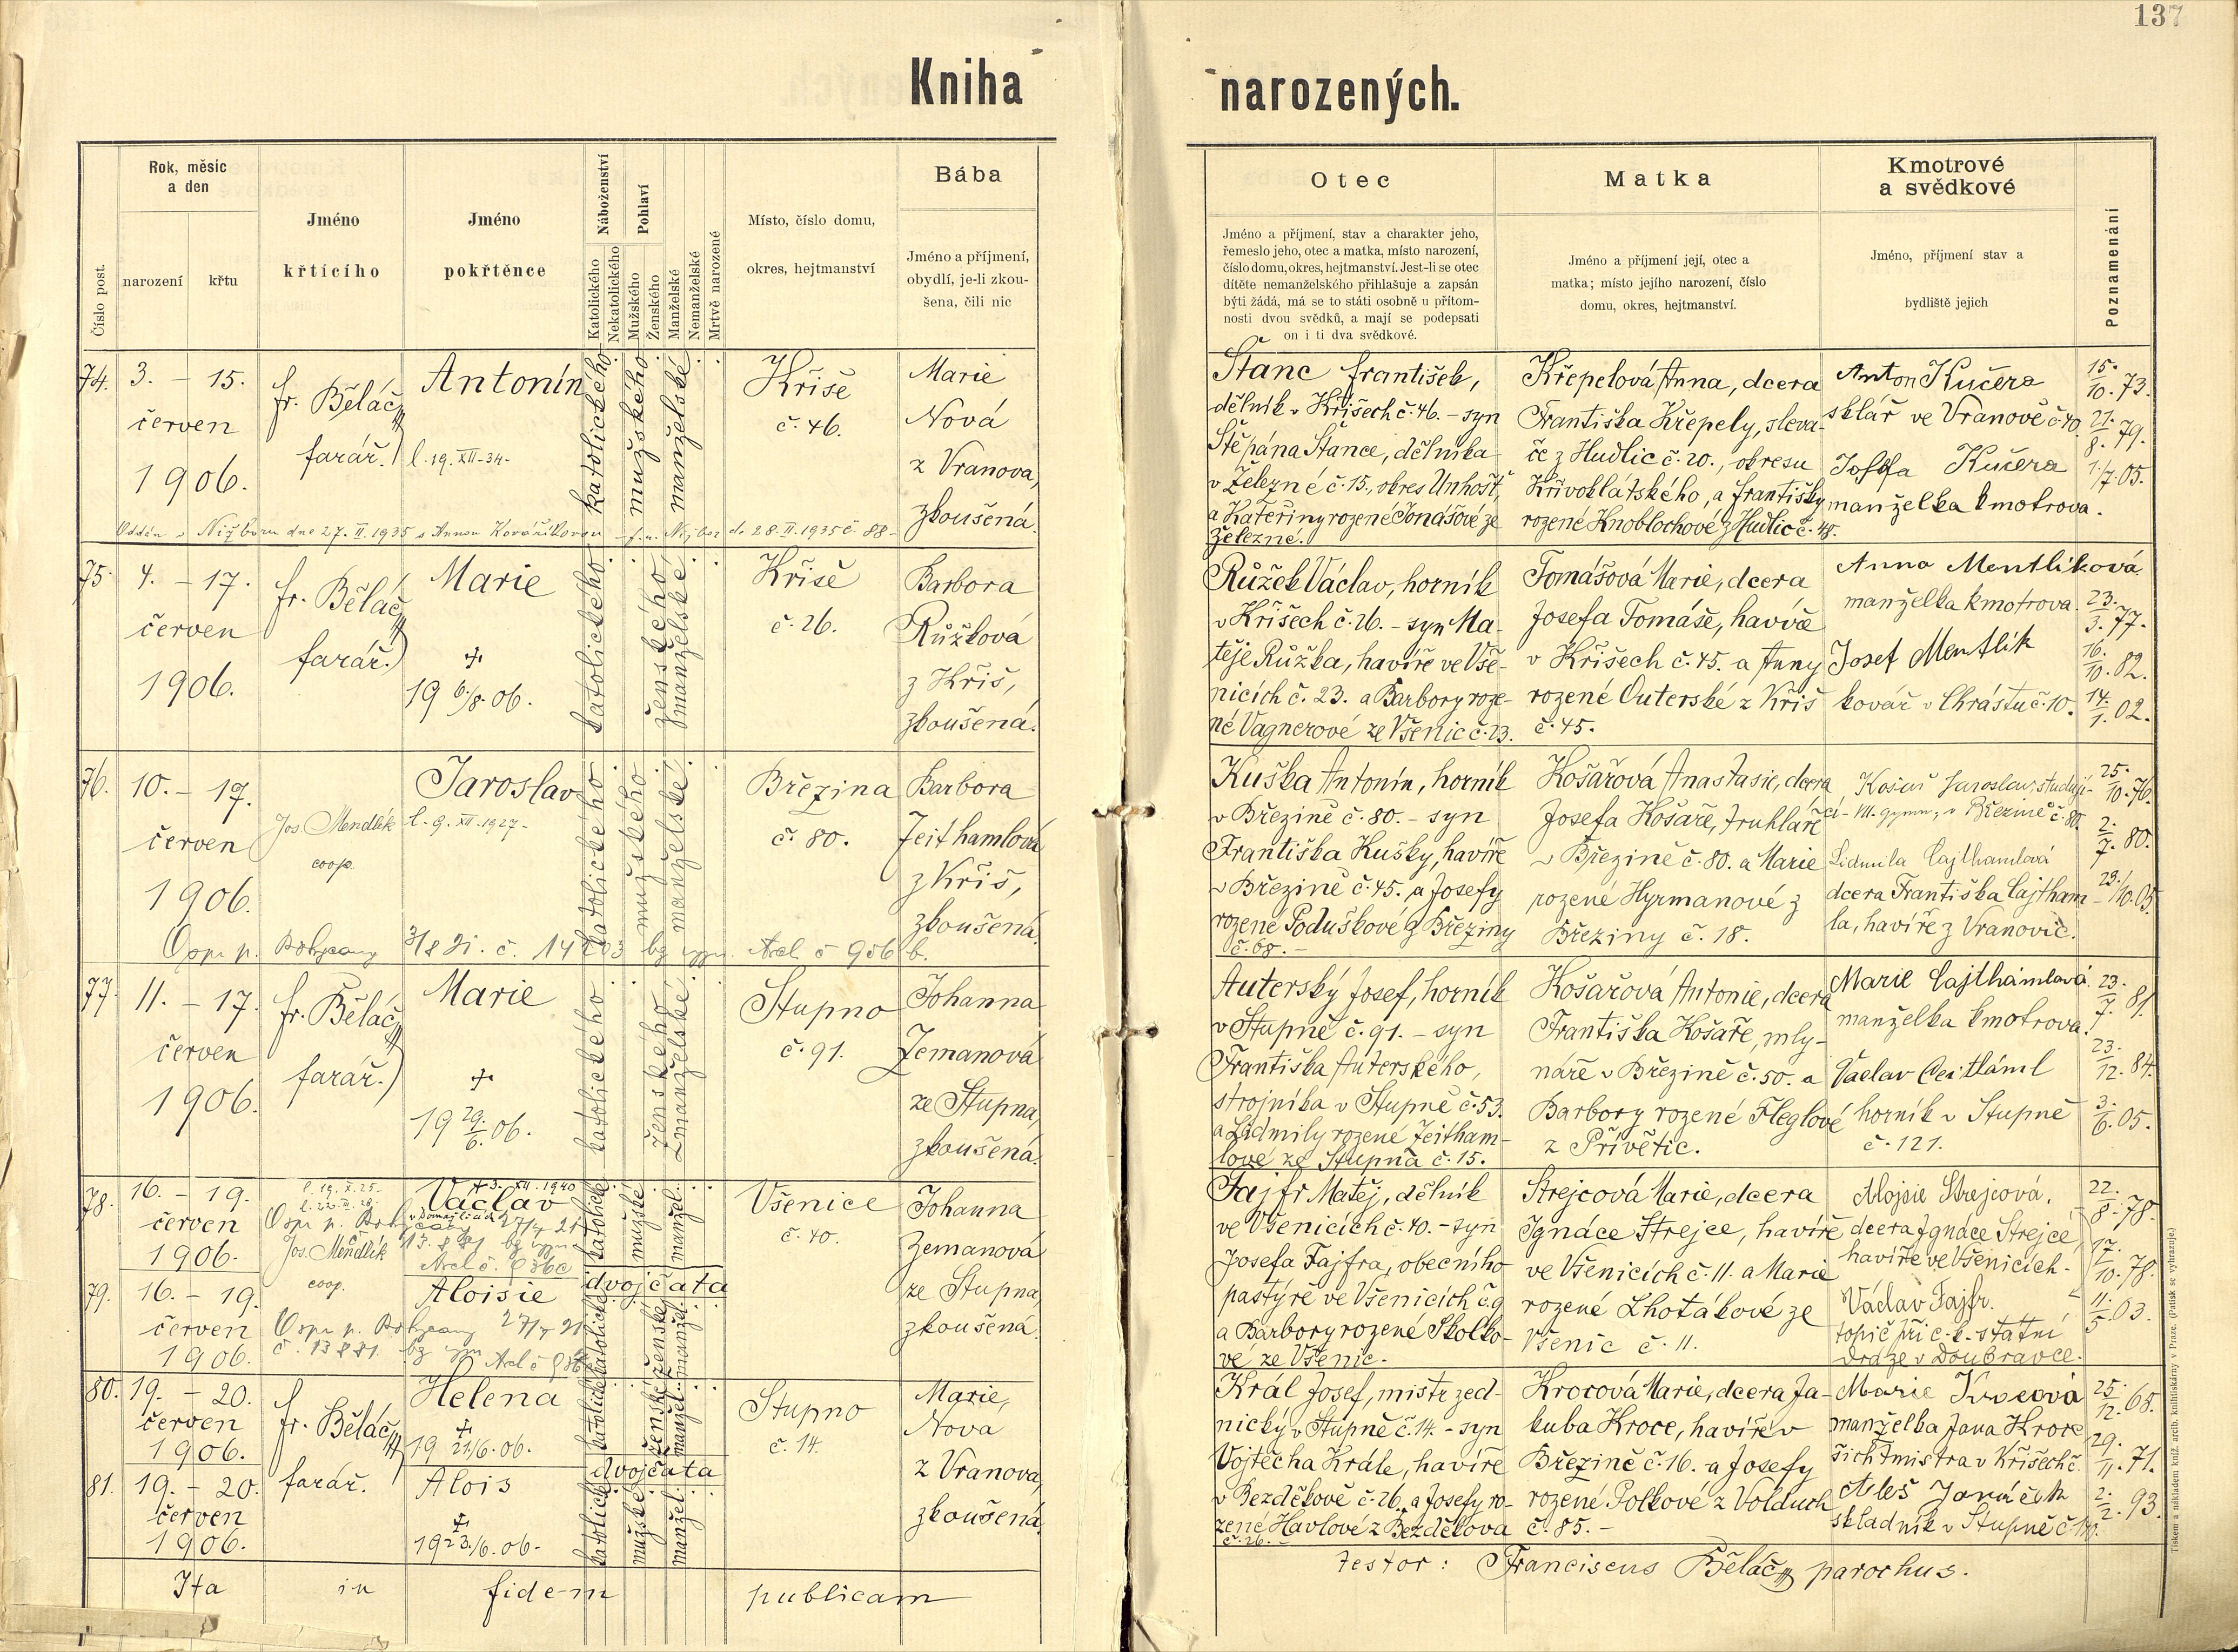 137
Kniha narozených.
Číslo post.
Rok, měsíc
a den
narození
křtu
Jméno
křtícího
Jméno
pokřtěnce
Náboženství
Katolického
Nekatolického
Pohlaví
Mužského
Ženského
Manželské
Nemanželské
Mrtvě narozené
Místo, číslo domu,
okres, hejtmanství
Bába
Jméno a příjmení,
obydlí, je-li zkou-
šena, čili nic
Otec
Jméno a příjmení, stav a charakter jeho,
řemeslo jeho, otec a matka, místo narození,
číslo domu, okres, hejtmanství. Jest-li se otec
dítěte nemanželského přihlašuje a zapsán
býti žádá, má se to státi osobně u přítom-
nosti dvou svědků, a mají se podepsati
on i ti dva svědkové.
Matka
Jméno a příjmení její, otec a
matka; místo jejího narození, číslo
domu, okres, hejtmanství.
Kmotrové
a svědkové
Jméno, příjmení stav a
bydliště jejich
Poznamenání
74. 3. – 15.
červen
1906.
fr. Běláč
farář.
Antonín
l. 19. XII - 34 -
katolického
mužského
manželské
Křiše
č. 46.
Marie
Nová
z Vranova,
zkoušená.
Oddán v Nižboru dne 27. II. 1935 s Annou Kovaříkovou - f. ú. Nižbor do 28. II. 1935 č. 88 -
Štanc František,
dělník v Křišech č. 46. – syn
Štěpána Štance, dělníka
v Železné č. 15., okres Unhošť,
a Kateřiny rozené Jonášové ze
Železné.
Křepelová Anna, dcera
Františka Křepely, sleva-
če z Hudlic č. 20., okresu
Křivoklátského, a Františky
rozené Knoblochové z Hudlic č. 48.
Anton Kučera
sklář ve Vranově č. 40.
Josefa Kučera
manželka kmotrova.
15./10. 73.
21./8. 79.
1./7. 05.
75. 4. – 17.
červen
1906.
fr. Běláč
farář.
Marie
+
19 6/8. 06.
katolického
ženského
manželské
Křiše
č. 26.
Barbora
Růžková
z Křiš,
zkoušená.
Růžek Václav, horník
v Křišech č. 26. – syn Ma-
těje Růžka, havíře ve Vše-
nicích č. 23. a Barbory roze-
né Vagnerové ze Všenic č. 23.
Tomášová Marie, dcera
Josefa Tomáše, havíře
v Křišech č. 45. a Anny
rozené Outerské z Křiš
č. 45.
Anna Mentlíková
manželka kmotrova.
Josef Mentlík
kovář v Chrástu č. 10.
23./3. 77.
16./10. 82.
14./1. 02.
76. 10. – 17.
červen
1906.
Jos. Mendlík
coop.
Jaroslav
l. 9. XII - 1927 -
katolického
mužského
manželské
Březina
č. 80.
Barbora
Zeithamlová
z Křiš,
zkoušená.
Kuška Antonín, horník
v Březině č. 80. – syn
Františka Kušky, havíře
v Březině č. 45. a Josefy
rozené Poduškové z Březiny
č. 68. –
Košařová Anastasie, dcera
Josefa Košaře, truhláře
v Březině č. 80. a Marie
rozené Hyrmanové z
Březiny č. 18.
Košař Jaroslav, studují-
cí - III. gymn., v Březině č. 80.
Lidmila Cajthamlová
dcera Františka Cajtham-
la, havíře z Vranovic.
25./10. 76.
2./7. 80.
29./10. 05.
77. 11. – 17.
červen
1906.
fr. Běláč
farář.
Marie
+
19 29./6. 06.
katolického
ženského
manželské
Stupno
č. 91.
Johanna
Zemanová
ze Stupna,
zkoušená.
Auterský Josef, horník
v Stupně č. 91. – syn
Františka Auterského,
strojníka v Stupně č. 53.
a Lidmily rozené Zeitham-
lové ze Stupna č. 15.
Košařová Antonie, dcera
Františka Košaře, mly-
náře v Březině č. 50. a
Barbory rozené Fleglové
z Přívětic.
Marie Cajthamlová
manželka kmotrova.
Václav
horník v Stupně
č. 121.
23./7. 81.
23./12. 84.
3./6. 05.
78. 16. – 19.
červen
1906.
Jos. Mendlík
coop.
+ 3. XII. 1940
Václav
katolické
mužské
manžel.
dvojčata
Všenice
č. 40.
Johanna
Zemanová
ze Stupna,
zkoušená.
79. 16. – 19.
červen
1906.
Aloisie
katolické
ženské
manžel.
Fajfr Matěj, dělník
ve Všenicích č. 40. – syn
Josefa Fajfra, obecního
pastýře ve Všenicích č. 9
a Barbory rozené Skolko-
vé ze Všenic.
Strejcová Marie, dcera
Ignáce Strejce, havíře
ve Všenicích č. 11. a Marie
rozené Lhotákové ze
Všenic č. 11.
Alojsie Strejcová,
dcera Ignáce Strejce,
havíře ve Všenicích.
Václav Fajfr.
topič při c. k. státní
dráze v Doubravce.
22./8. 78.
17./10. 78.
11./5. 03.
80. 19. – 20.
červen
1906.
fr. Běláč
farář.
Helena
+
19 21./6. 06.
katolické
ženské
manžel.
dvojčata
Stupno
č. 14.
Marie,
Nova
z Vranova,
zkoušená.
81. 19. – 20.
červen
1906.
Alois
+
19 23./6. 06.
katolické
mužské
manžel.
Král Josef, mistr zed-
nický v Stupně č. 14. – syn
Vojtěcha Krále, havíře
v Bezděkově č. 26. a Josefy ro-
zené Havlové z Bezděkova
č. 26. –
Krocová Marie, dcera Ja-
kuba Kroce, havíře v
Březině č. 16. a Josefy
rozené Polkové z Volduch
č. 85. –
Marie Krocová
manželka Jana Kroce
šichtmistra v Křišech č.
Aleš Janáček
skladník v Stupně č.
25./12. 68.
29./11. 71.
2./2. 93.
Ita in fidem publicam
testor: Franciscus Běláč parochus.
Tiskem a nákladem kníž. arcib. knihtiskárny v Praze. (Patisk se vyhrazuje.)